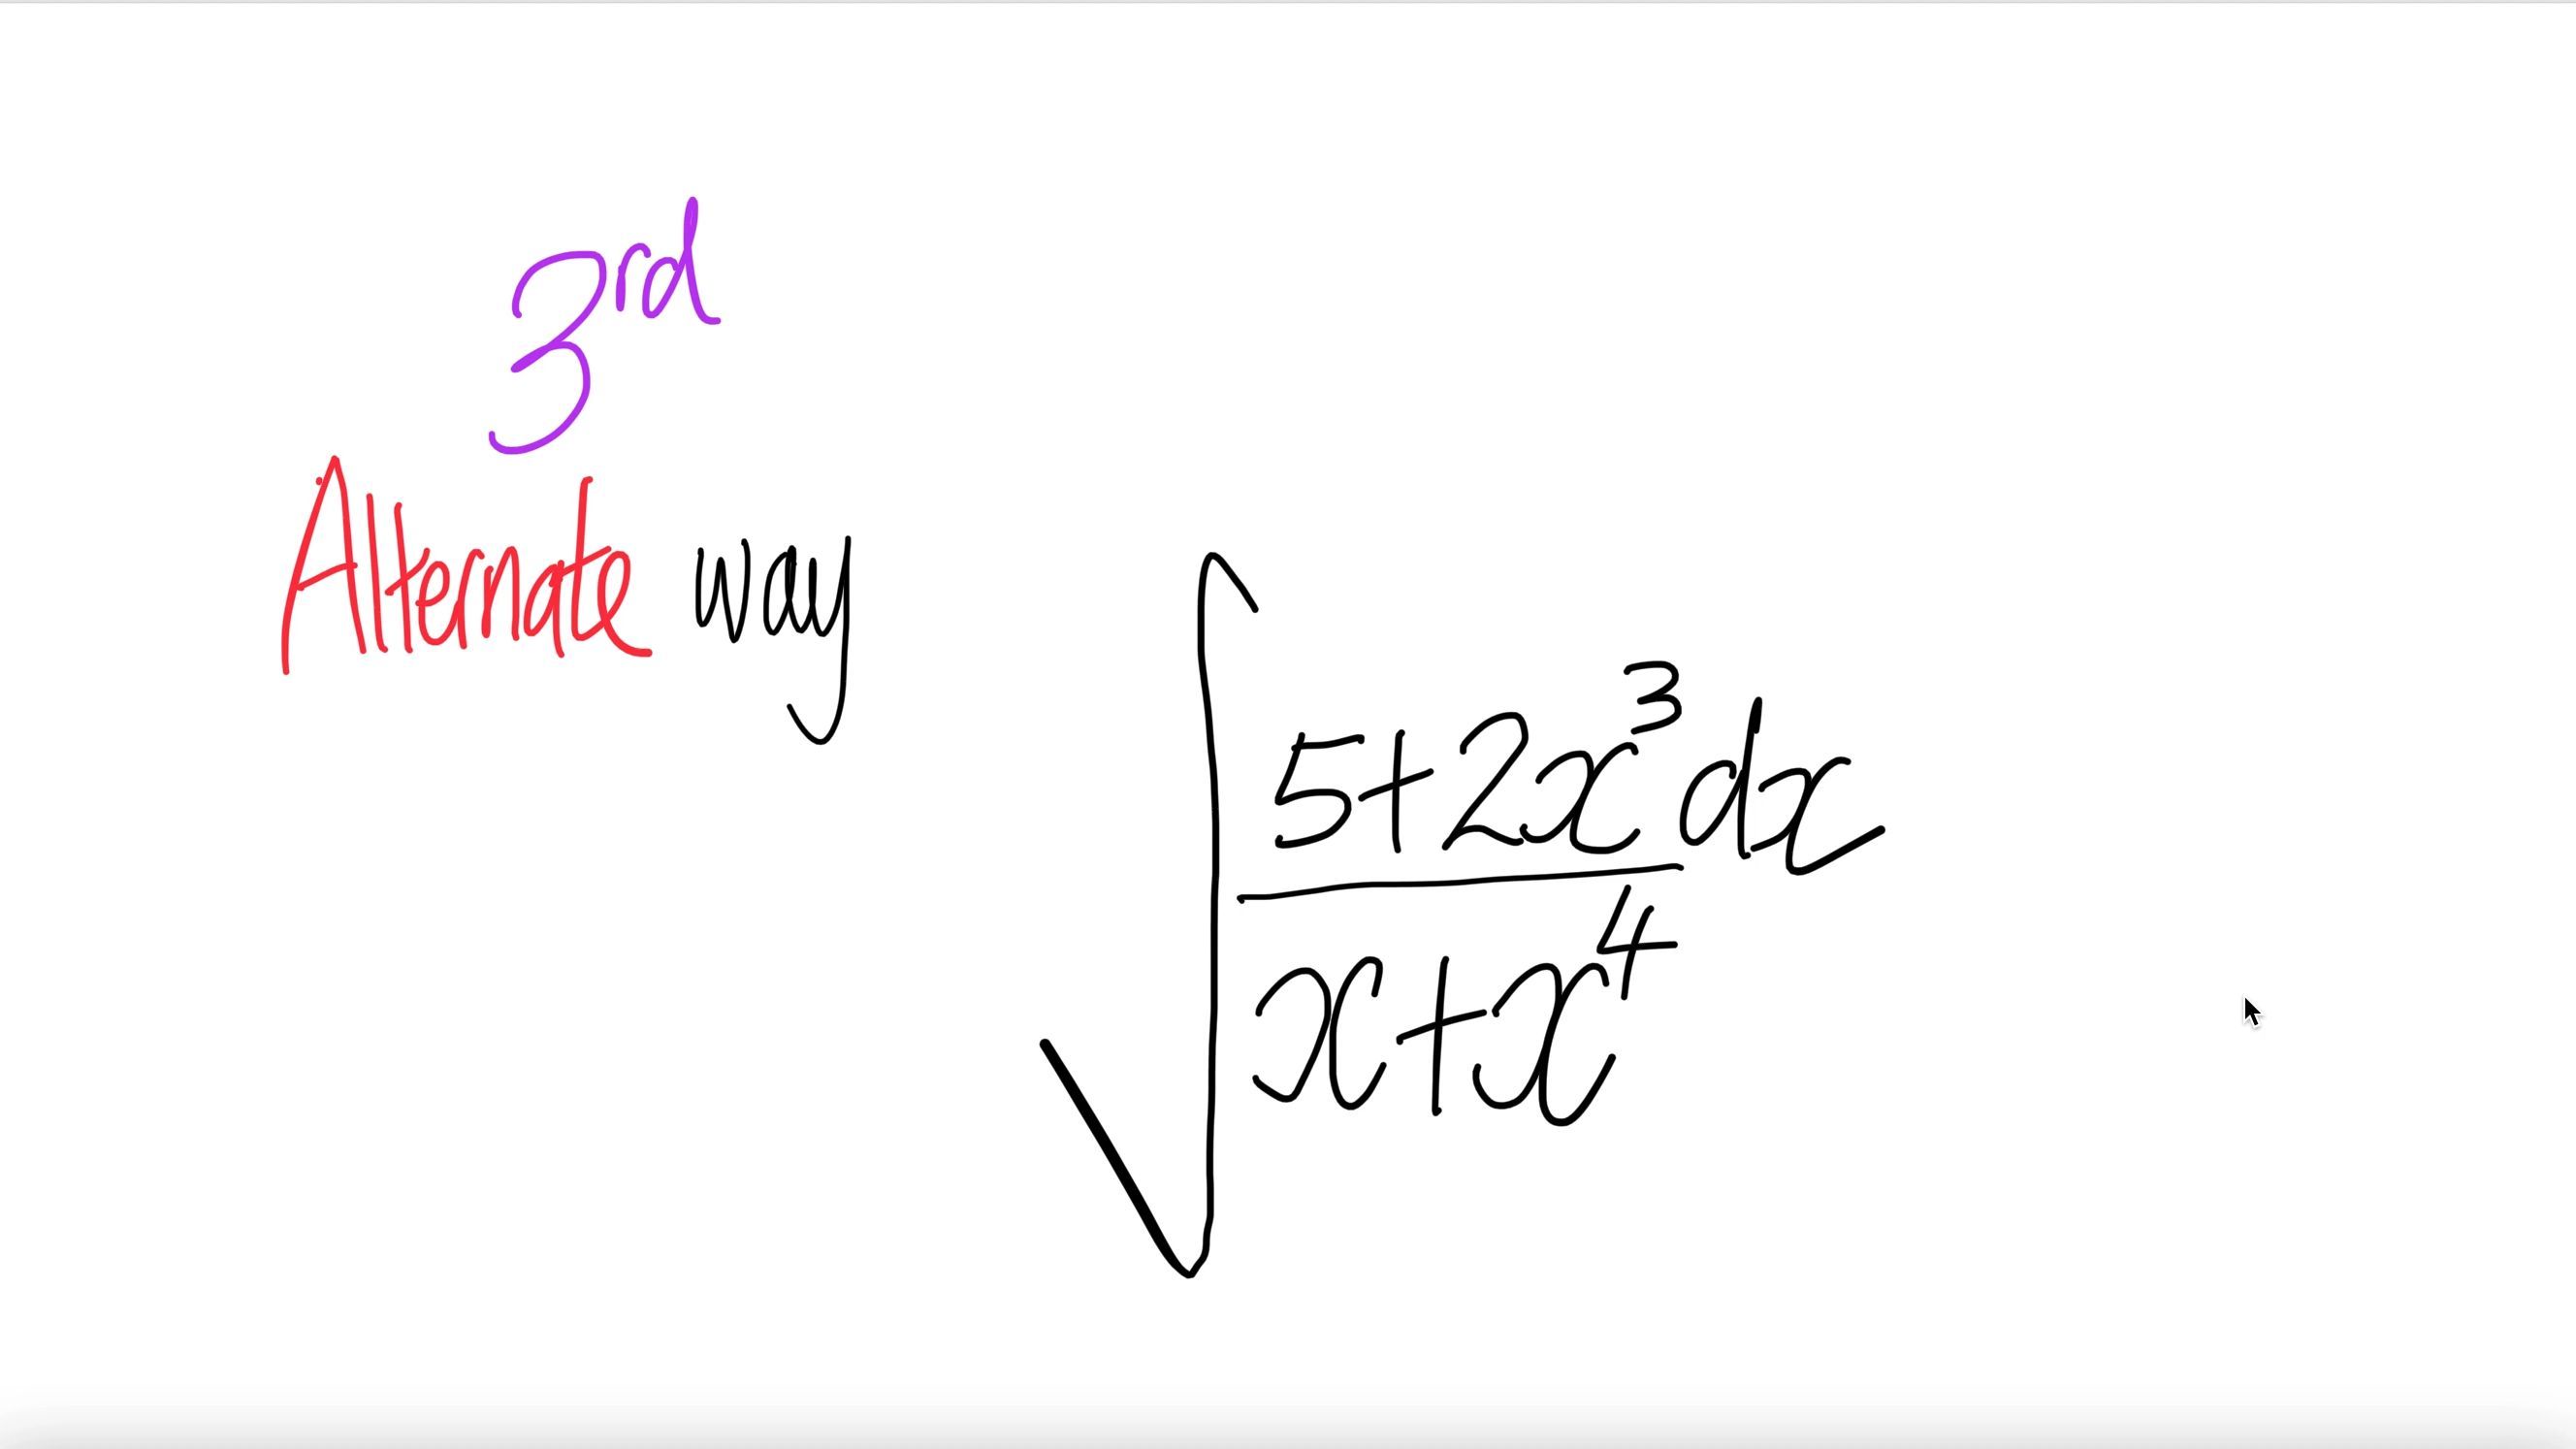 3rd
Alternate way
∫ 5+2x³ dx
x+x⁴